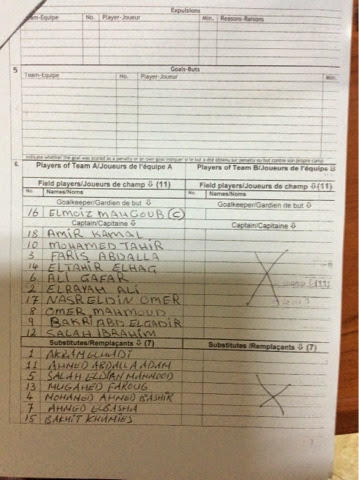 Expulsions
Team-Equipe No. Player-Joueur Min. Reasons-Raisons
5 Goals-Buts
Team-Equipe No. Player-Joueur Min.
Indicate whether the goal was scored as a penalty or an own goal
6. Players of Team A/Joueurs de l'équipe A Players of Team B/Joueurs de l'équipe B
Field players/Joueurs de champ ⇩ (11) Field players/Joueurs de champ ⇩ (11)
No. Names/Noms No. Names/Noms
Goalkeeper/Gardien de but ⇩ Goalkeeper/Gardien de but ⇩
16 ELMOIZ MAHGOUB (C)
Captain/Capitaine ⇩ Captain/Capitaine ⇩
18 AMIR KAMAL
10 MOHAMED TAHIR
3 FARIS ABDALLA
14 ELTAHIR ELHAG
6 ALI GAFAR
2 ELRAYAH ALI
17 NASRELDIN OMER
8 OMER MAHMOUD
9 BAKRI ABD ELGADIR
12 SALAH IBRAHIM
Substitutes/Remplaçants ⇩ (7) Substitutes/Remplaçants ⇩ (7)
1 AKRAM ELHADI
11 AHMED ABDALLA ADAM
5 SALAH ELDIAN MAHMOOD
13 MUGAHED FAROUG
4 MOHAMED AHMED BASHIR
7 AHMED ELBASHA
15 BAKHIT KHAMIES